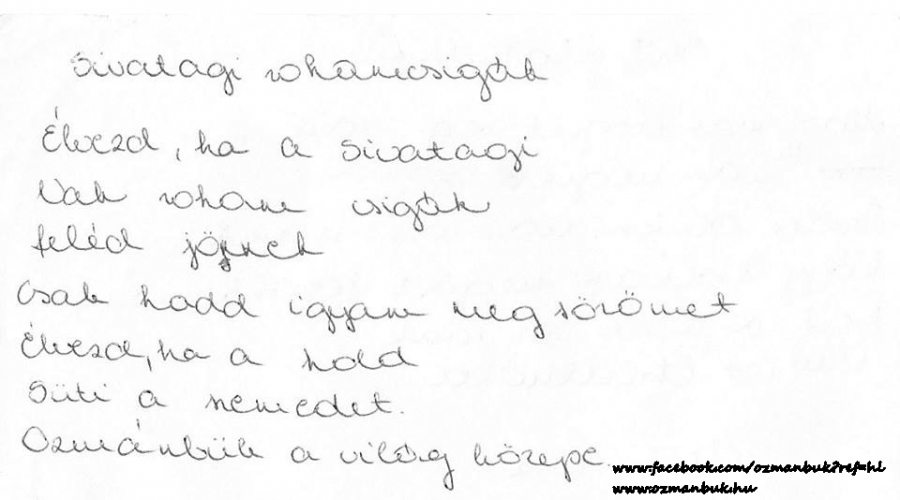 Sivatagi rohamcsigák
Élvezd, ha a sivatagi
Vak roham csigák
feléd jönnek
Csak hadd igyam meg sörömet
Élvezd, ha a hold
Süti a szemedet.
Ozmánbük a világ közepe
www.facebook.com/ozmanbuk?ref=hl
www.ozmanbuk.hu